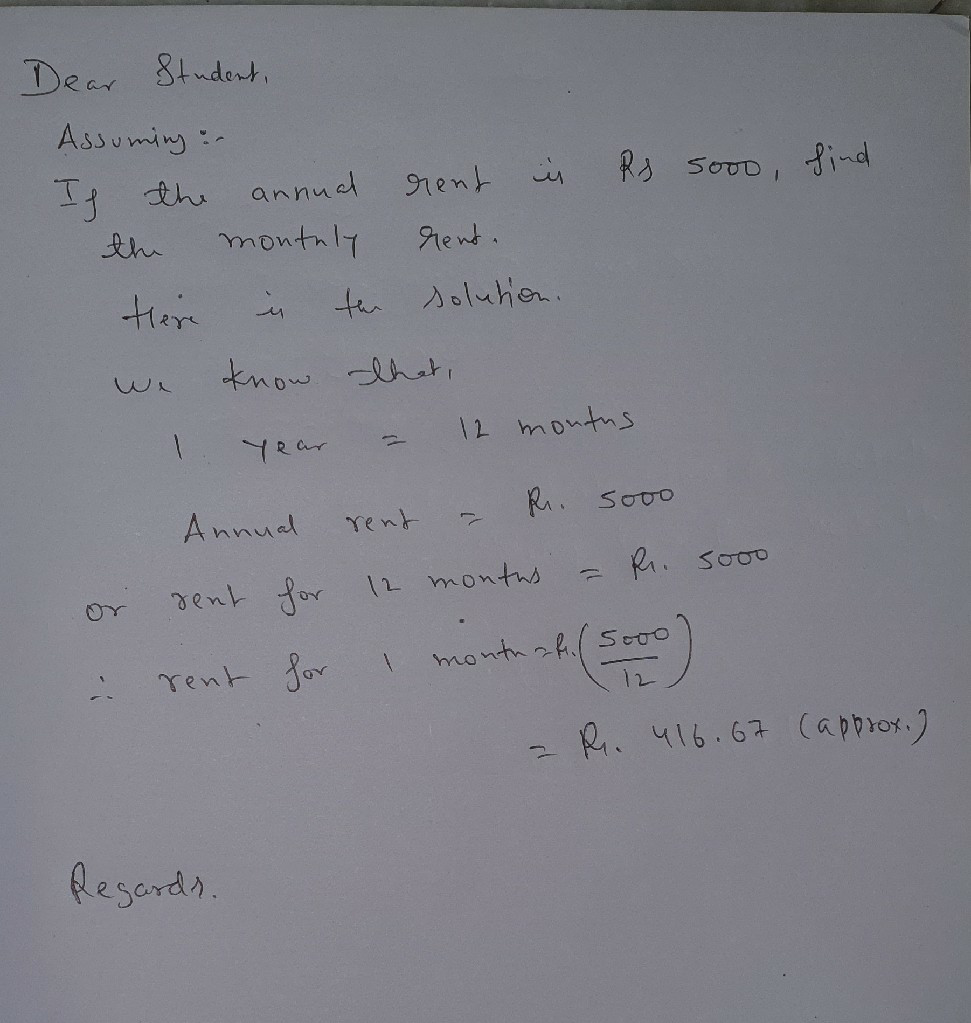 Dear Student,
Assuming :-
If the annual rent is Rs 5000, find
the monthly rent.
Here is the solution.
We know that,
1 year = 12 months
Annual rent = Rs. 5000
or rent for 12 months = Rs. 5000
∴ rent for 1 month = Rs. (5000/12)
= Rs. 416.67 (approx.)
Regards.